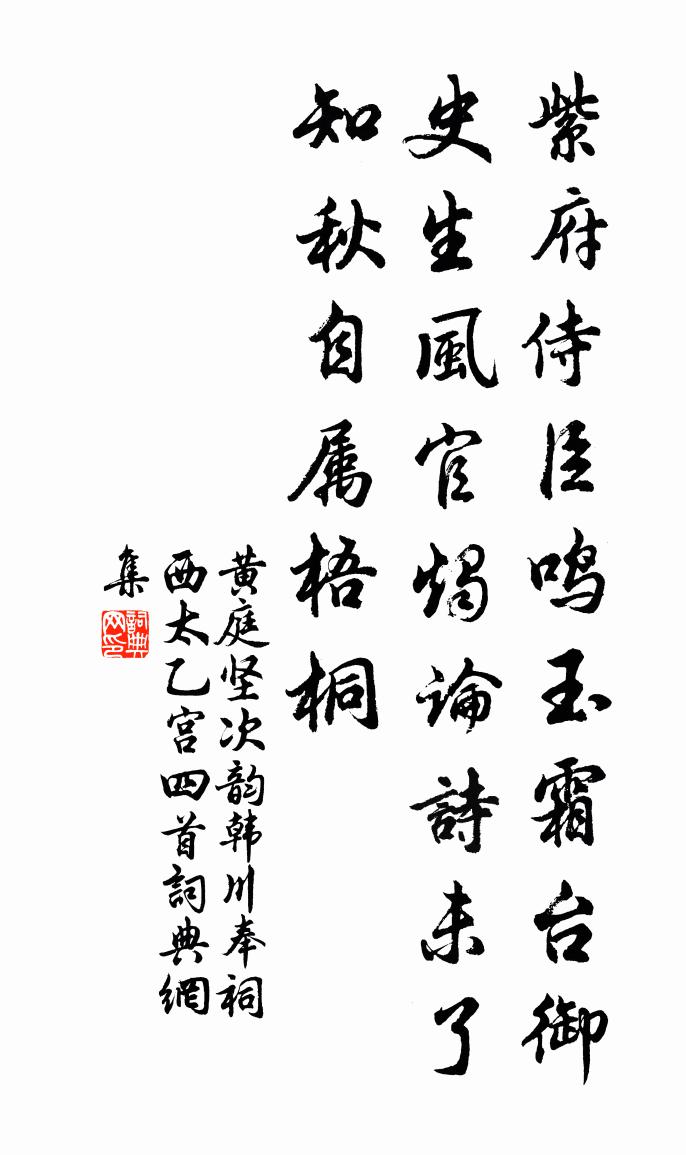 紫府侍臣鳴玉霜台御
史生風官燭論詩未了
知秋自属梧桐
黄庭坚次韵韩川奉祠
西太乙宫四首詞典網
集
詞典网印